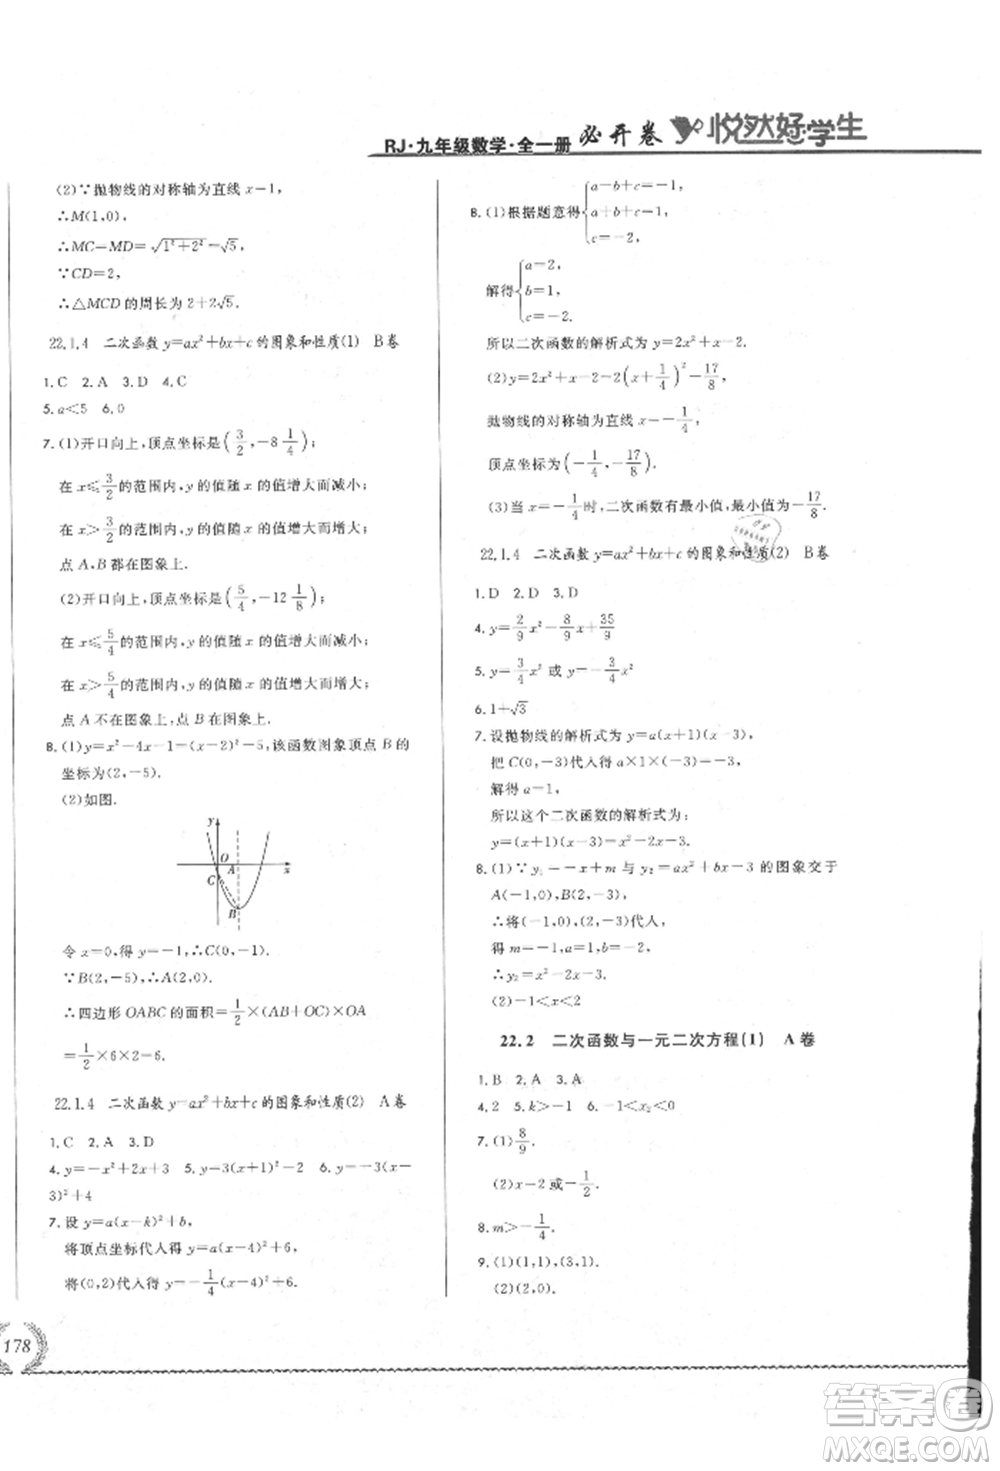 RJ·九年级数学·全一册 必开卷 悦然好学生
(2)∵抛物线的对称轴为直线 x=1,
∴M(1,0),
∴MC=MD=√(1²+2²)=√5,
∵CD=2,
∴△MCD 的周长为 2+2√5.
22.1.4 二次函数 y=ax²+bx+c 的图象和性质(1) B卷
1.C 2.A 3.D 4.C
5.a<5 6.0
7.(1)开口向上,顶点坐标是(3/2,-8 1/4);
在 x≤3/2 的范围内,y 的值随 x 的值增大而减小;
在 x>3/2 的范围内,y 的值随 x 的值增大而增大.
点 A,B 都在图象上.
(2)开口向上,顶点坐标是(5/4,-12 1/8);
在 x≤5/4 的范围内,y 的值随 x 的值增大而减小;
在 x>5/4 的范围内,y 的值随 x 的值增大而增大;
点 A 不在图象上,点 B 在图象上.
8.(1)y=x²-4x-1=(x-2)²-5,该函数图象顶点 B 的
坐标为(2,-5).
(2)如图.
y
O A x
C
B
令 x=0,得 y=-1,∴C(0,-1).
∵B(2,-5),∴A(2,0).
∴四边形 OABC 的面积=1/2×(AB+OC)×OA
=1/2×6×2=6.
22.1.4 二次函数 y=ax²+bx+c 的图象和性质(2) A卷
1.C 2.A 3.D
4.y=-x²+2x+3 5.y=1/2x²-2x 6.y=-(x-
3)²+4
7.设 y=a(x-k)²+b,
将顶点坐标代入得 y=a(x-4)²+6,
将(0,2)代入得 y=-1/4(x-4)²+6.
8.(1)根据题意得{a-b+c=-1, a+b+c=1, c=-2,
解得{a=2, b=1, c=-2.
所以二次函数的解析式为 y=2x²+x-2.
(2)y=2x²+x-2=2(x+1/4)²-17/8,
抛物线的对称轴为直线 x=-1/4,
顶点坐标为(-1/4,-17/8).
(3)当 x=-1/4时,二次函数有最小值,最小值为-17/8.
22.1.4 二次函数 y=ax²+bx+c 的图象和性质(2) B卷
1.D 2.D 3.D
4.y=2/9x²-8/9x+35/9
5.y=3/4x² 或 y=-3/4x²
6.1+√3
7.设抛物线的解析式为 y=a(x+1)(x-3),
把 C(0,-3)代入得 a×1×(-3)=-3,
解得 a=1,
所以这个二次函数的解析式为:
y=(x+1)(x-3)=x²-2x-3.
8.(1)∵y₁=-x+m 与 y₂=ax²+bx-3 的图象交于
A(-1,0),B(2,-3),
∴将(-1,0),(2,-3)代入,
得 m=-1,a=1,b=-2,
∴y₂=x²-2x-3.
(2)-1<x<2
22.2 二次函数与一元二次方程(1) A卷
1.B 2.A 3.A
4.2 5.k>-1 6.-1<x₂<0
7.(1)8/9.
(2)x=2 或-1/2.
8.m>-1/4.
9.(1)(1,1),(3,1).
(2)(2,0).
178
答案圈
MXQE.COM